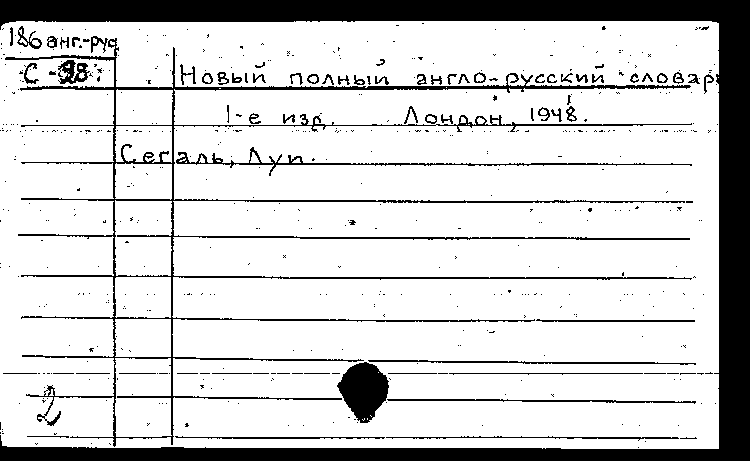 186 анг.-рус
С-98. Новый полный англо-русский словарь
1-е изд. Лондон, 1948.
Сегаль, Луи.
2